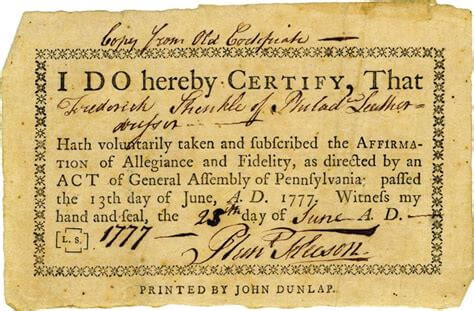 Copy from Old Certificate
I DO hereby CERTIFY, That
Frederick Shinkle of Philad. Leather
dresser
Hath voluntarily taken and subscribed the AFFIRMA-
TION of Allegiance and Fidelity, as directed by an
ACT of General Assembly of Pennsylvania, passed
the 13th day of June, A. D. 1777. Witness my
hand and seal, the 28th day of June A. D.
[L. S.] 1777
PRINTED BY JOHN DUNLAP.